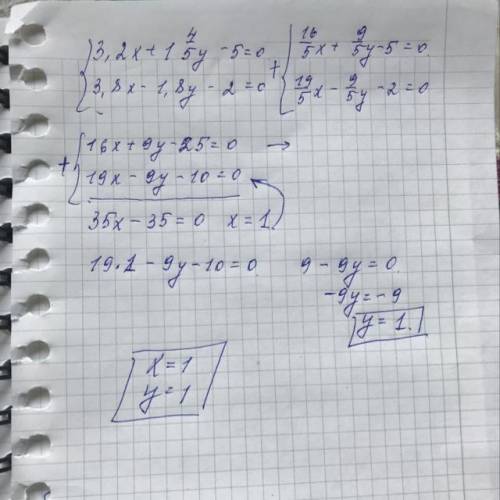 3,2x + 1 4/5 y - 5 = 0
3,8x - 1,8y - 2 = 0
+
16/5 x + 9/5 y - 5 = 0
19/5 x - 9/5 y - 2 = 0
+
16x + 9y - 25 = 0 →
19x - 9y - 10 = 0
35x - 35 = 0 x = 1
19·1 - 9y - 10 = 0
9 - 9y = 0
-9y = -9
y = 1.
x = 1
y = 1